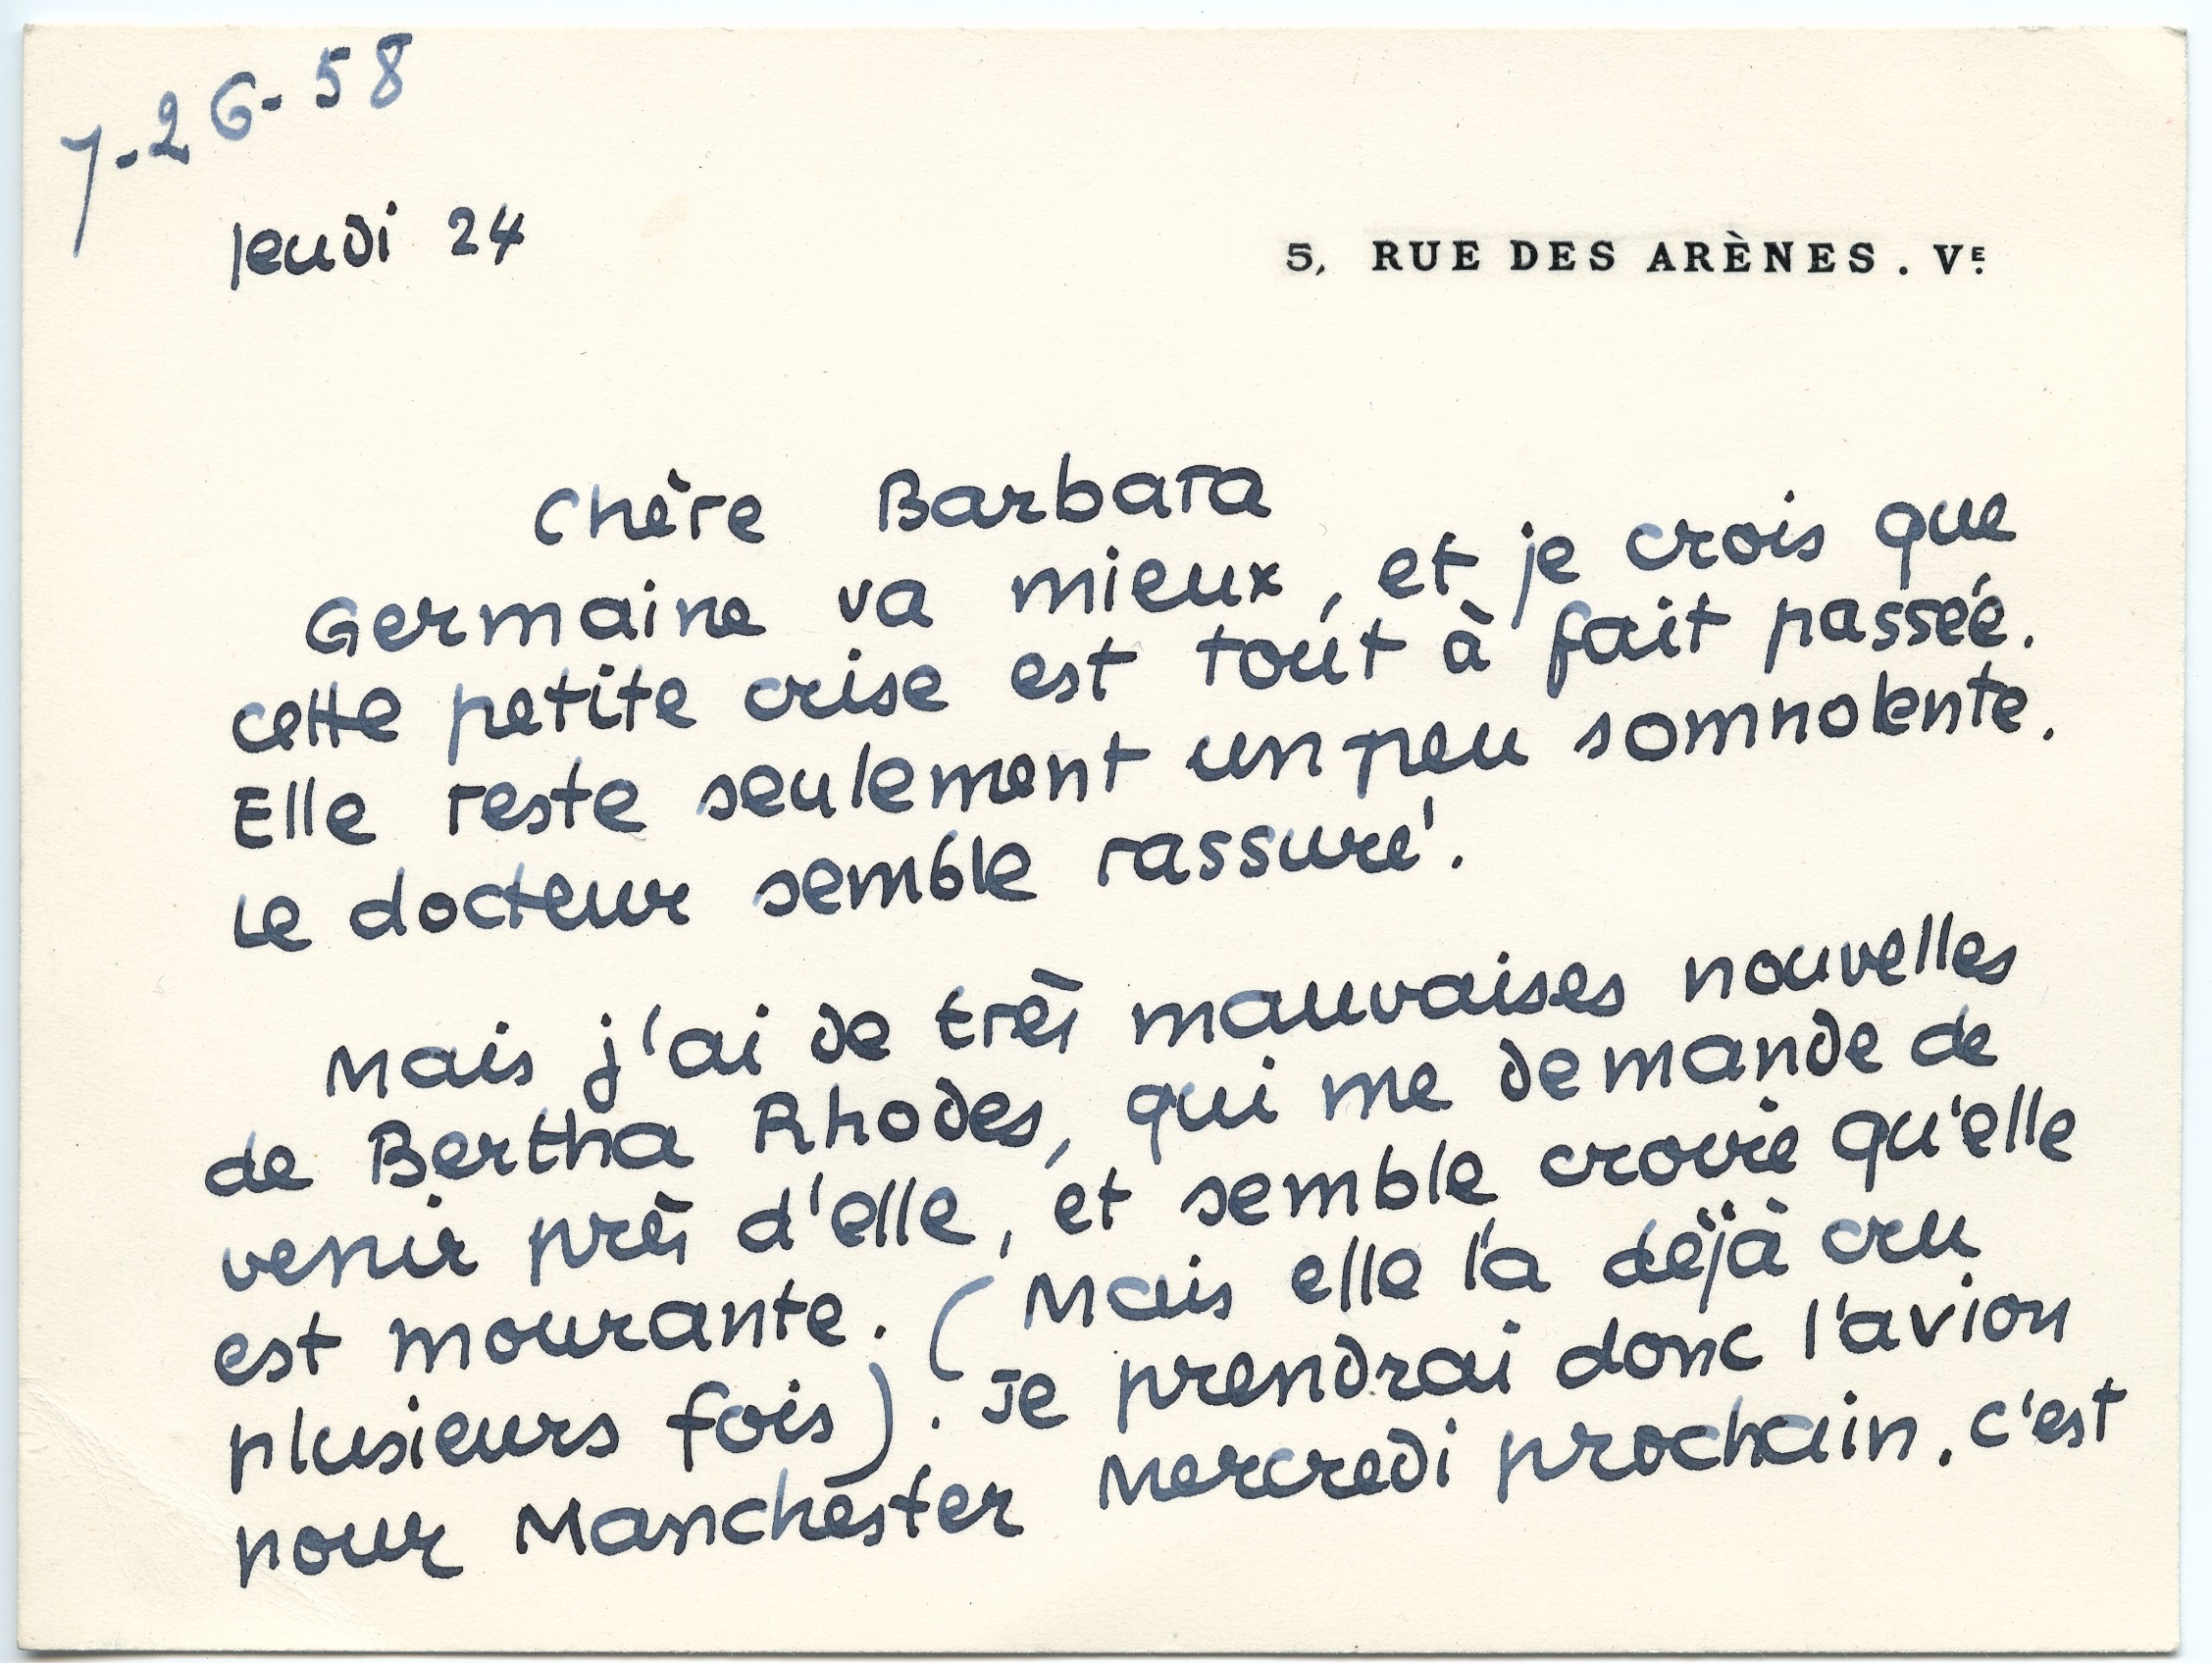 7-26-58
Jeudi 24
5, RUE DES ARÈNES. Vᴱ.
Chère Barbara
Germaine va mieux, et je crois que
cette petite crise est tout à fait passée.
Elle reste seulement un peu somnolente.
Le docteur semble rassuré.
Mais j'ai de très mauvaises nouvelles
de Bertha Rhodes, qui me demande de
venir près d'elle, et semble croire qu'elle
est mourante. (Mais elle l'a déjà cru
plusieurs fois). Je prendrai donc l'avion
pour Manchester Mercredi prochain. C'est